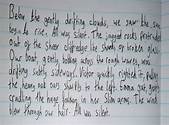 Below the gently drifting clouds, we saw the sun
begin to rise. All was silent. The jagged rocks protruded
out of the sheer cliffedge like shards of broken glass.
Our boat, gently bobbing across the rough waves, was
drifting subtly sideways. Victor quickly righted it, pulling
the heavy oak oars swiftly to the left. Emma sat gently
cradling the large in her slim arms. The wind
blew through our hair. All was silent.